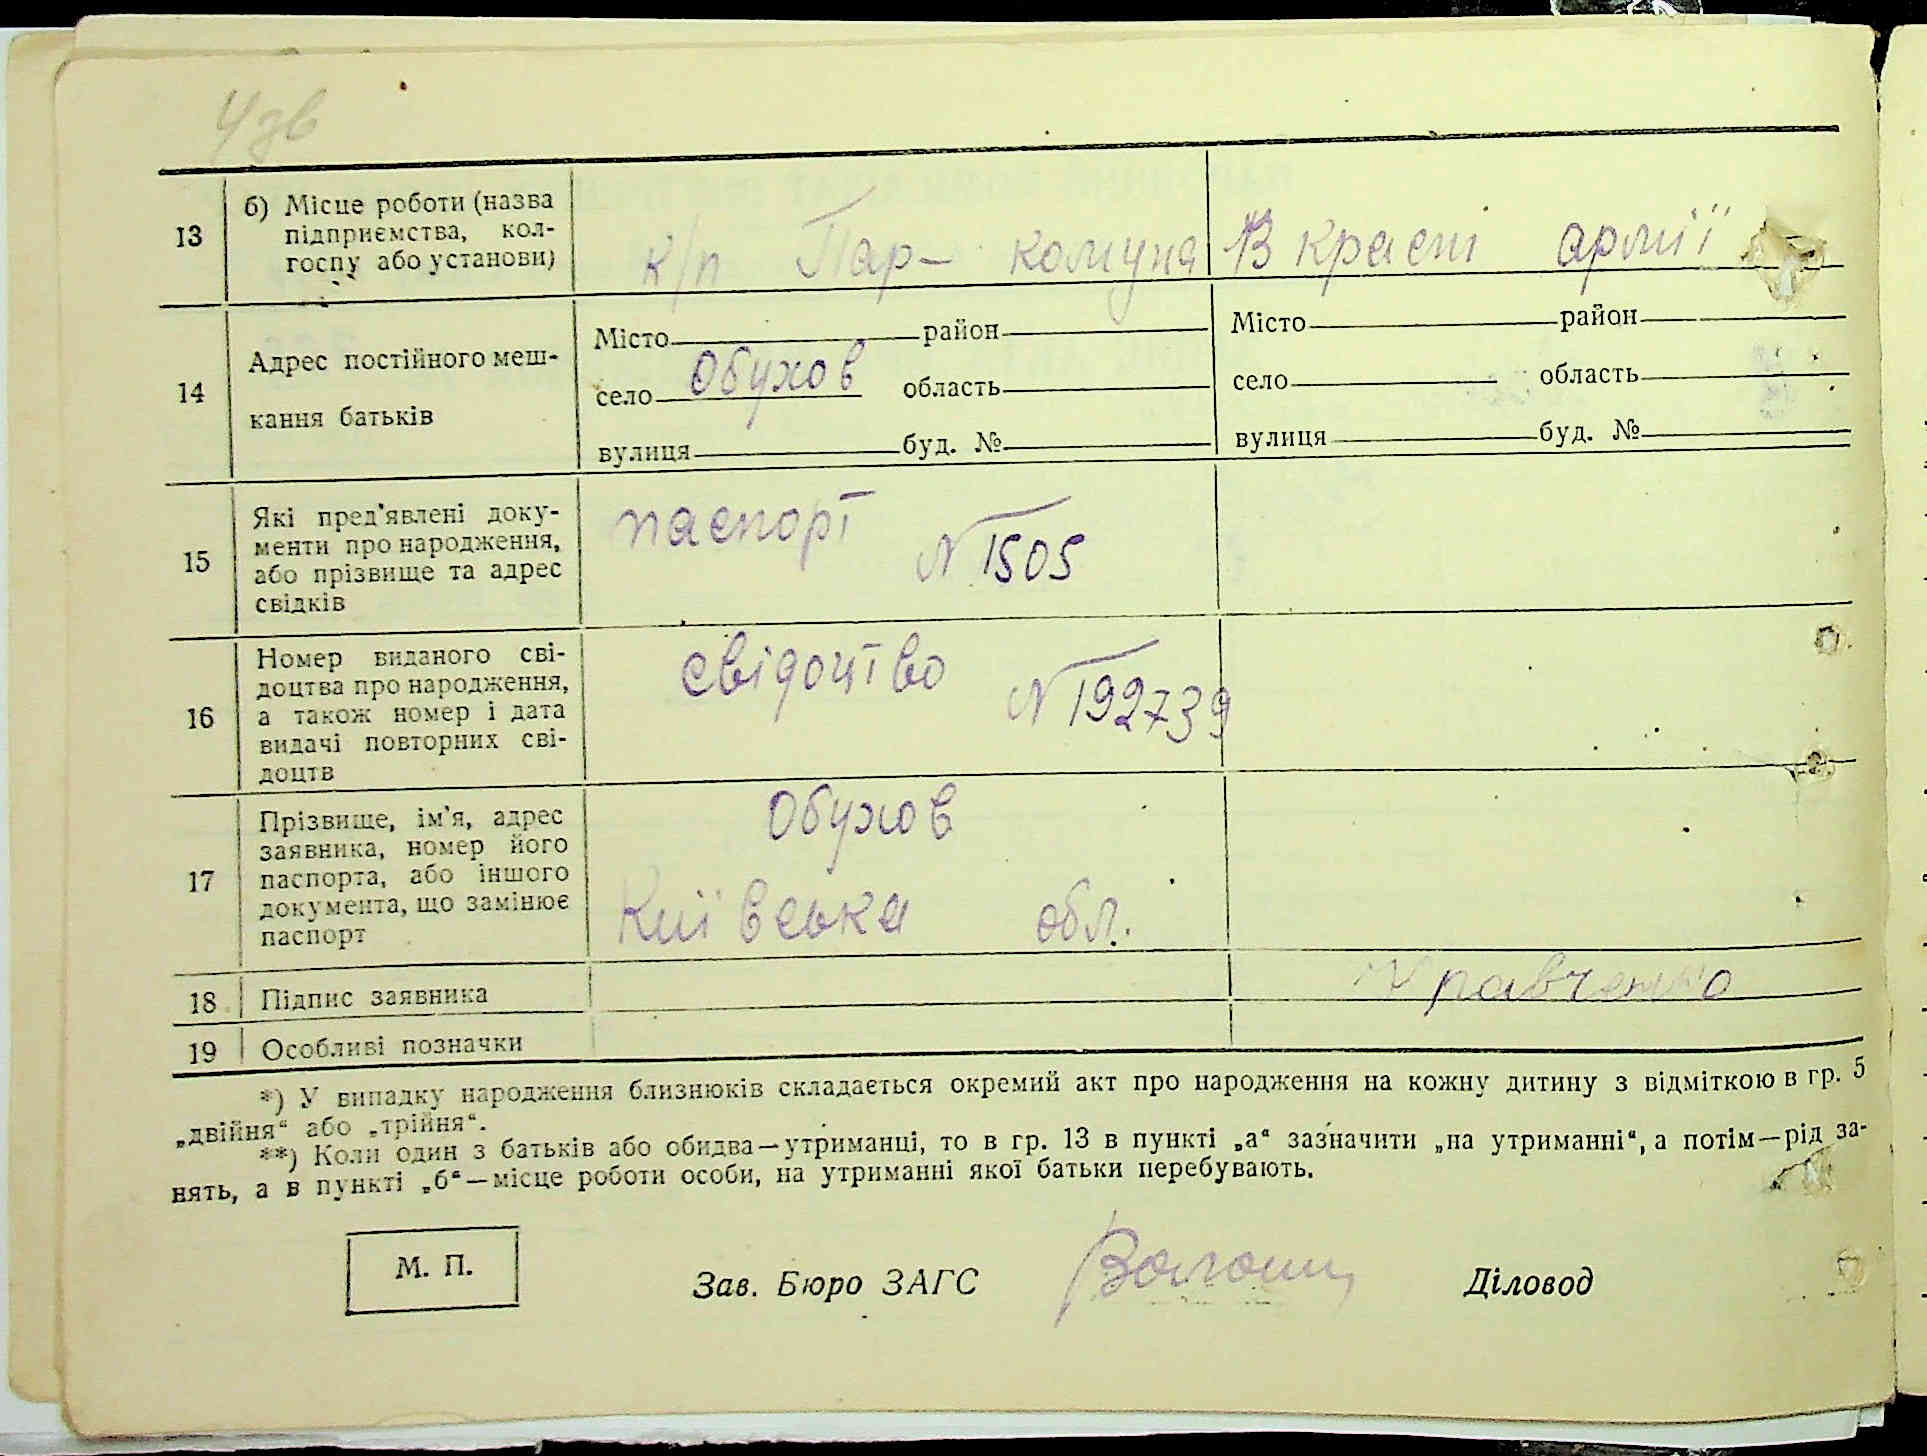 4 зв
13
б) Місце роботи (назва
підприємства, кол-
госпу або установи)
к/п Пар- комуна
В красні армії
14
Адрес постійного меш-
кання батьків
Місто район
село Обухов область
вулиця буд. №
Місто район
село область
вулиця буд. №
15
Які пред'явлені доку-
менти про народження,
або прізвище та адрес
свідків
паспорт
№ 1505
16
Номер виданого сві-
доцтва про народження,
а також номер і дата
видачі повторних сві-
доцтв
свідоцтво
№ 192739
17
Прізвище, ім'я, адрес
заявника, номер його
паспорта, або іншого
документа, що замінює
паспорт
Обухов
Київська обл.
18
Підпис заявника
Кравченко
19
Особливі позначки
*) У випадку народження близнюків складається окремий акт про народження на кожну дитину з відміткою в гр. 5
„двійня“ або „трійня“.
**) Коли один з батьків або обидва—утриманці, то в гр. 13 в пункті „а“ зазначити „на утриманні“, а потім—рід за-
нять, а в пункті „б“—місце роботи особи, на утриманні якої батьки перебувають.
М. П.
Зав. Бюро ЗАГС
Волошин
Діловод